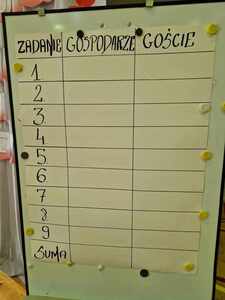 ZADANIE GOSPODARZE GOŚCIE
1
2
3
4
5
6
7
8
9
SUMA